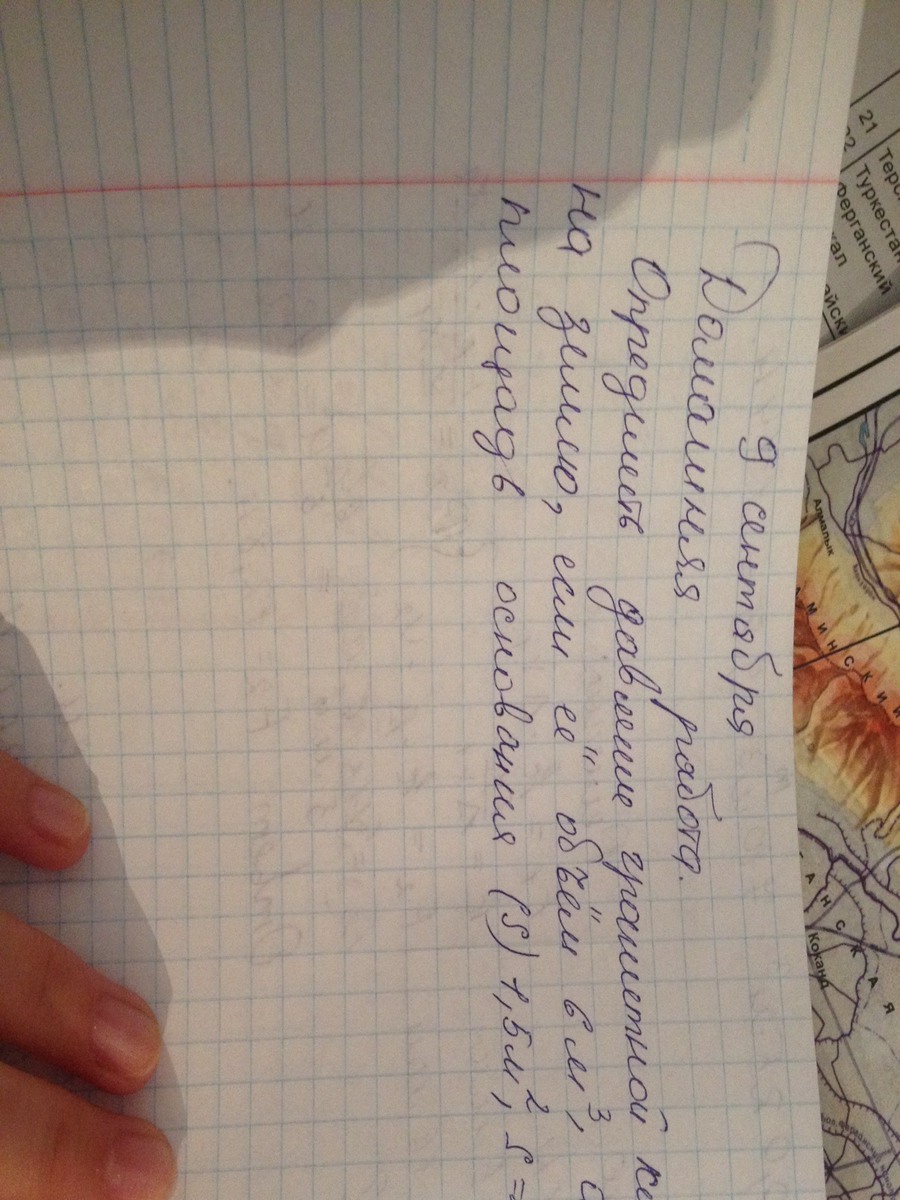 9 сентабря
Домашняя работа.
Определить давление гранетной
на землю, если её объём 6 м³,
площадь основания (S) 1,5м², S =
21 Терс
22 Туркестан
Ферганский
Алмалык
МИНСКИ
АНСКАЯ
Коканд